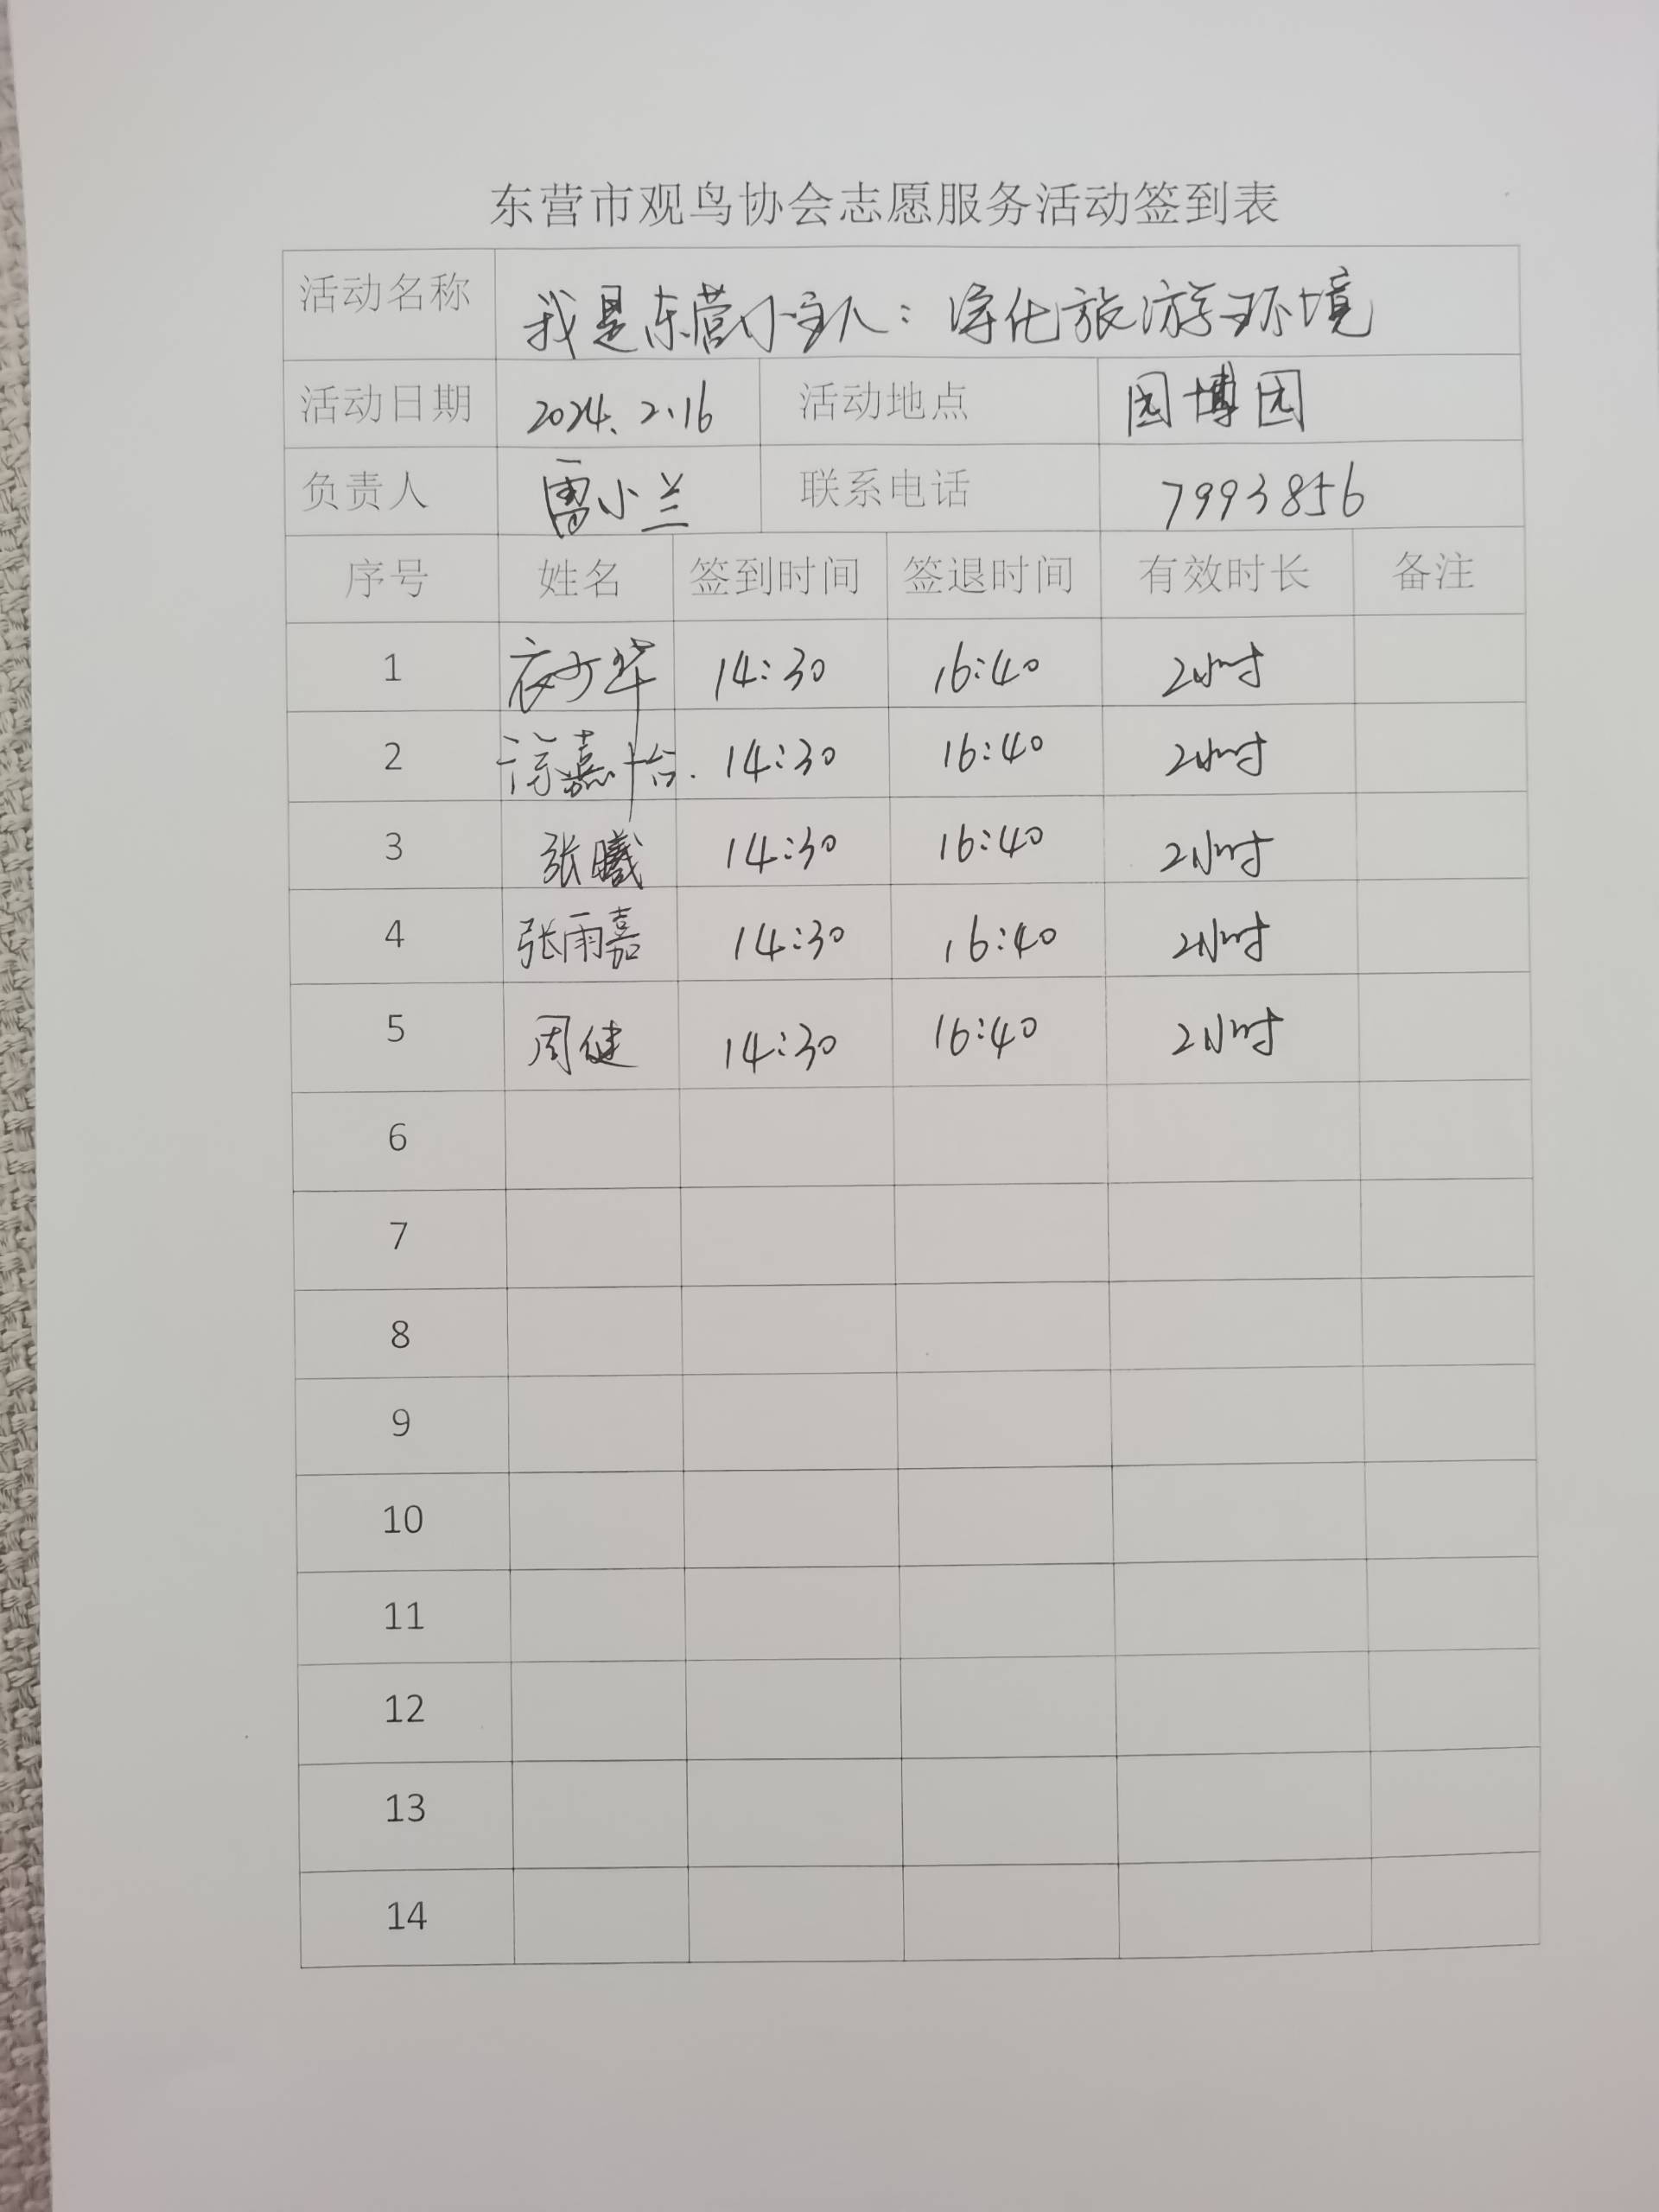 东营市观鸟协会志愿服务活动签到表
活动名称 我是东营小主人：净化旅游环境
活动日期 2024.2.16 活动地点 园博园
负责人 雷小兰 联系电话 7993856
序号 姓名 签到时间 签退时间 有效时长 备注
1 14:30 16:40 2小时
2 14:30 16:40 2小时
3 张曦 14:30 16:40 2小时
4 张雨嘉 14:30 16:40 2小时
5 周健 14:30 16:40 2小时
6
7
8
9
10
11
12
13
14